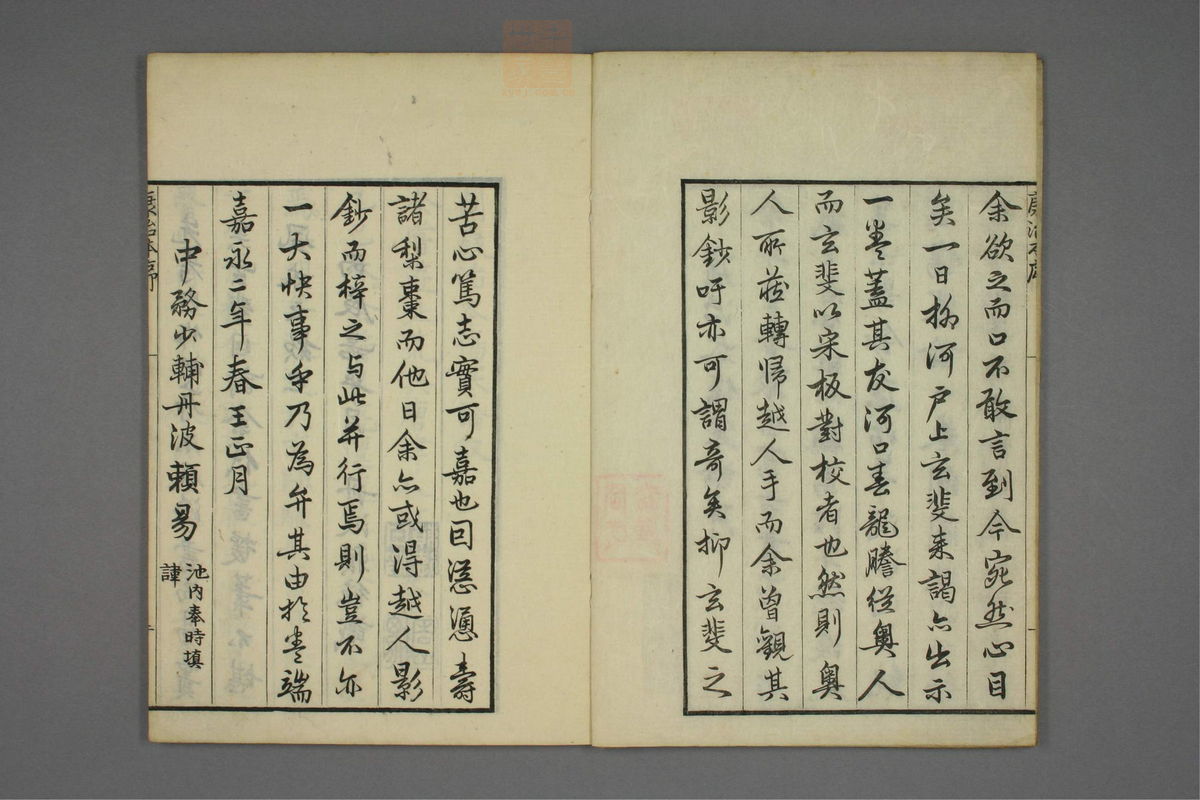 余欲之而口不敢言到今宛然心目
矣一日柳河戸上玄斐来謁亦出示
一卷蓋其友河口春龍謄從奥人
而玄斐以宋板對校者也然則奥
人所莊轉歸越人手而余曾觀其
影鈔吁亦可謂奇矣抑玄斐之
苦心篤志實可嘉也因慫慂壽
諸梨棗而他日余亦或得越人影
鈔而梓之与此并行焉則豈不亦
一大快事乎乃為弁其由於卷端
嘉永二年春王正月
中務少輔丹波賴易
池内奉時填
諱
康治本序